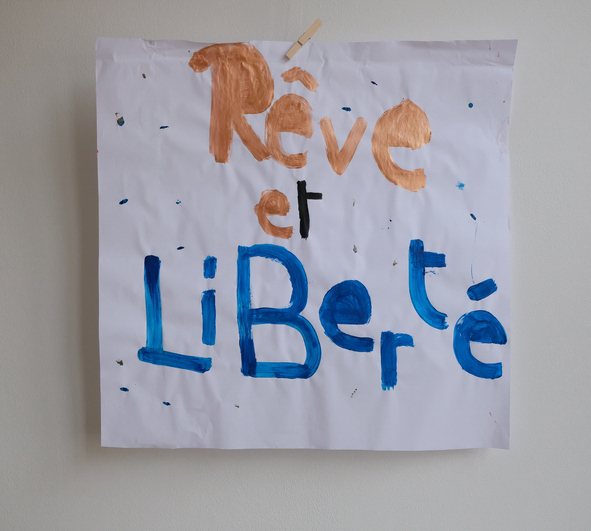 Rêve
et
LiBerté